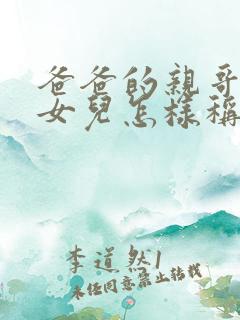 爸爸的親哥
女兒怎樣稱
李道然1
未任同意禁止转载